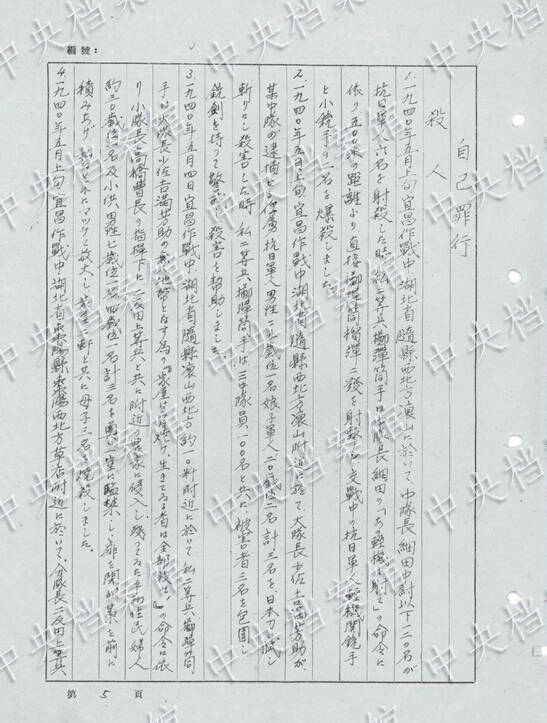 編號:
自己罪行
殺人
1. 一九四〇年五月上旬宜昌作戰中湖北省隨縣西北方滾山に於いて、中隊長細田中尉以下一二〇名が
抗日軍人六名を射殺した時、私二等兵擲彈筒手は中隊長細田の「あの輕機を射て」の命令に
依り五〇〇米の距離より直接擲彈筒榴彈二發を射擊し交戰中の抗日軍人輕機関銃手
と小銃手の二名を爆殺しました。
2. 一九四〇年五月上旬宜昌作戰中、湖北省隨縣西北方滾山附近に於て大隊長少佐吉満芳助が
某中隊の逮捕した俘虜抗日軍人男性二〇歲位一名娘子軍人二〇歲位二名計三名を日本刀で試し
斬りにし殺害した時、私二等兵擲彈筒手は三中隊員、一〇〇名と共に被害者三名を包囲し
銃劍を待って警戒し殺害を幇助しました。
3. 一九四〇年五月四日宜昌作戰中、湖北省隨縣滾山西北方約一〇粁附近に於いて私二等兵擲彈筒
手は大隊長少佐吉満芳助の無人地帶となす為の「家屋は燒拂け、生きてゐる者は全部殺せ」の命令に依
り小隊長高橋曹長の指揮下に二反田上等兵と共に附近の農家に侵入し殘ってゐた平和住民婦人
約三〇歲位一名及小供男性七歲位一名四歲位一名計三名を
扉を閉め藁を前に
積みあげ
それにマッチで放火し
家屋一軒と共に母子三名を燒殺しました。
4. 一九四〇年五月上旬宜昌作戰中湖北省棗陽縣棗陽西北方草店附近に於いて、分隊長二反田上等兵
第 5 頁
中央档案館